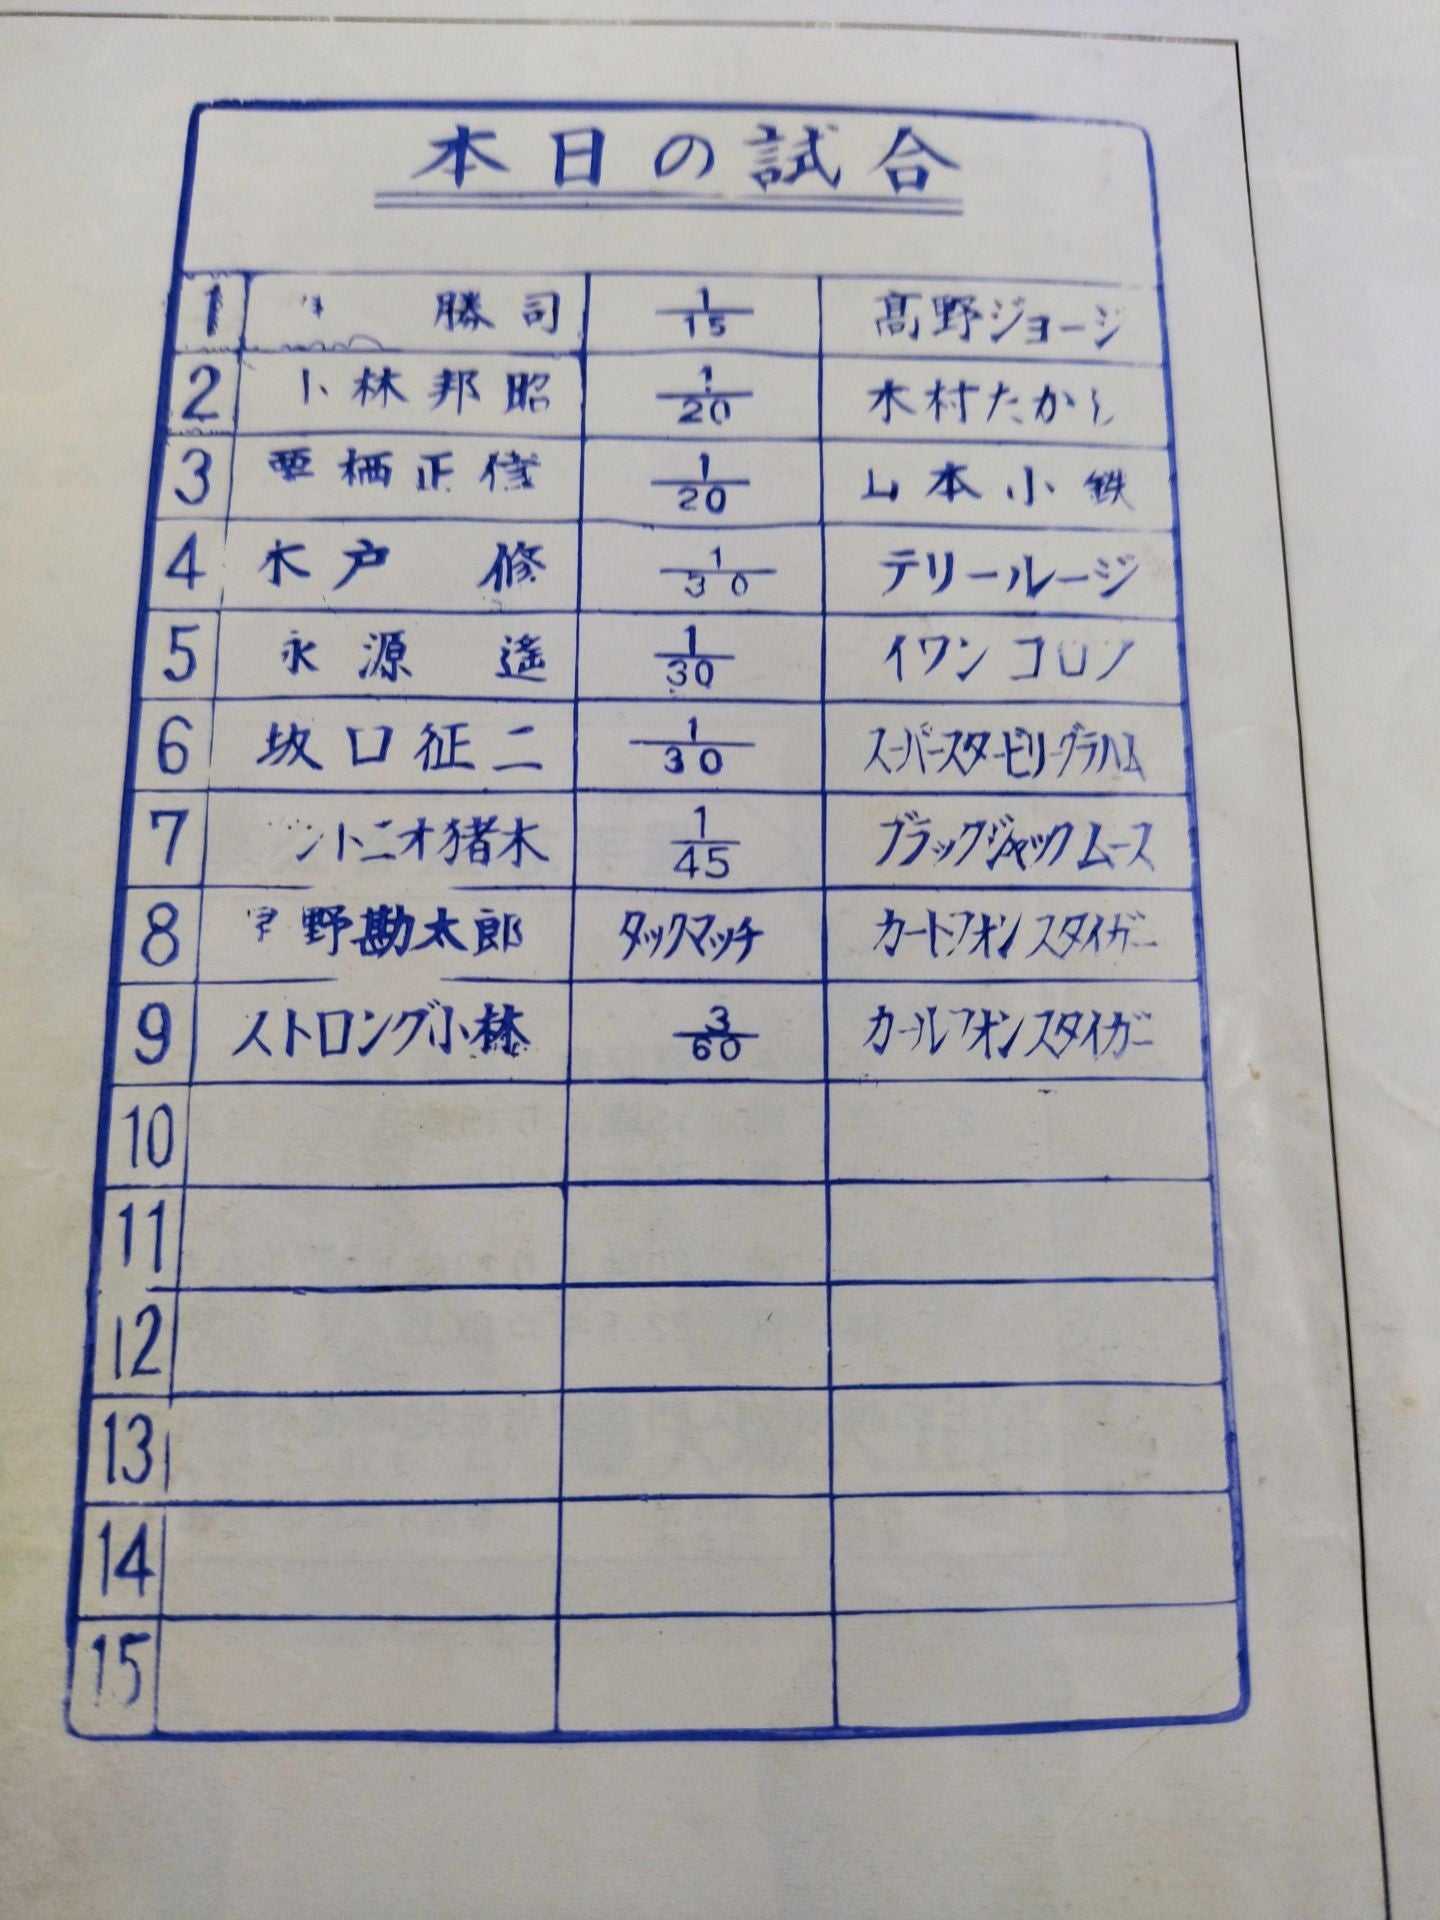 本日の試合
1 勝司 1/15 髙野ジョージ
2 小林邦昭 1/20 木村たかし
3 栗栖正伸 1/20 山本小鉄
4 木戸 修 1/30 テリールージ
5 永源 遙 1/30 イワン コロフ
6 坂口征二 1/30 スーパースタービリーグラハム
7 アントニオ猪木 1/45 ブラックジャック ムース
8 星野勘太郎 タックマッチ カートフォン スタイガー
9 ストロング小林 3/60 カールフォン スタイガー
10
11
12
13
14
15